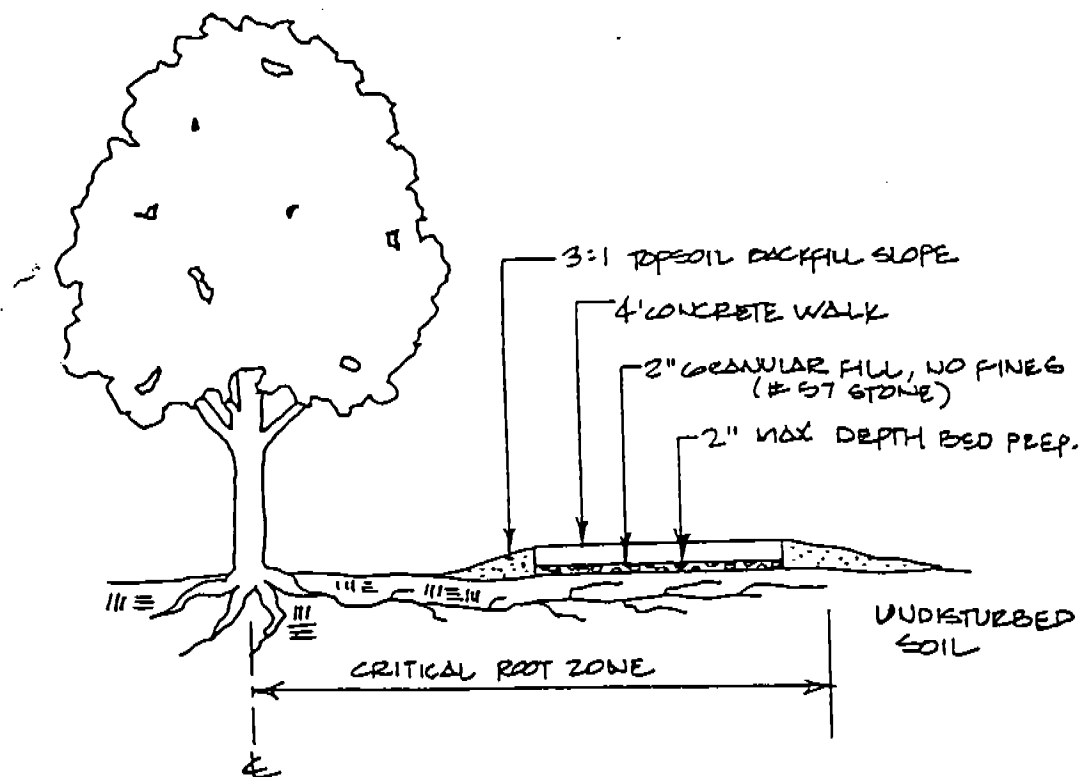 3:1 TOPSOIL BACKFILL SLOPE
4' CONCRETE WALK
2" GRANULAR FILL, NO FINES
(#57 STONE)
2" MAX DEPTH BED PREP.
UNDISTURBED
SOIL
CRITICAL ROOT ZONE
℄